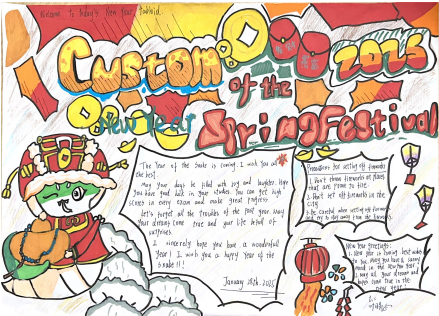 Welcome to today's New Year
Custom
2025
of the
New Year
Spring Festival
The Year of the Snake is coming. I wish you all
the best.
May your days be filled with joy and laughter. Hope
you have good luck in your studies. You can get high
scores in every exam and make great progress.
Let's forget all the troubles of the past year. May
your dreams come true and your life be full of
surprises.
I sincerely hope you have a wonderful
year! I wish you a happy Year of the
Snake!!
January 28th. 2025
Precautions for setting off fireworks
1. Don't throw fireworks at places
that are prone to fire.
2. Don't set off fireworks in the
city.
3. Be careful when setting off fireworks
and try to stay away from the
New Year greetings:
1. New year is coming, best wishes
to you. May you have a
in the new year.
2. May all your dreams and
hopes come true in the
new year.